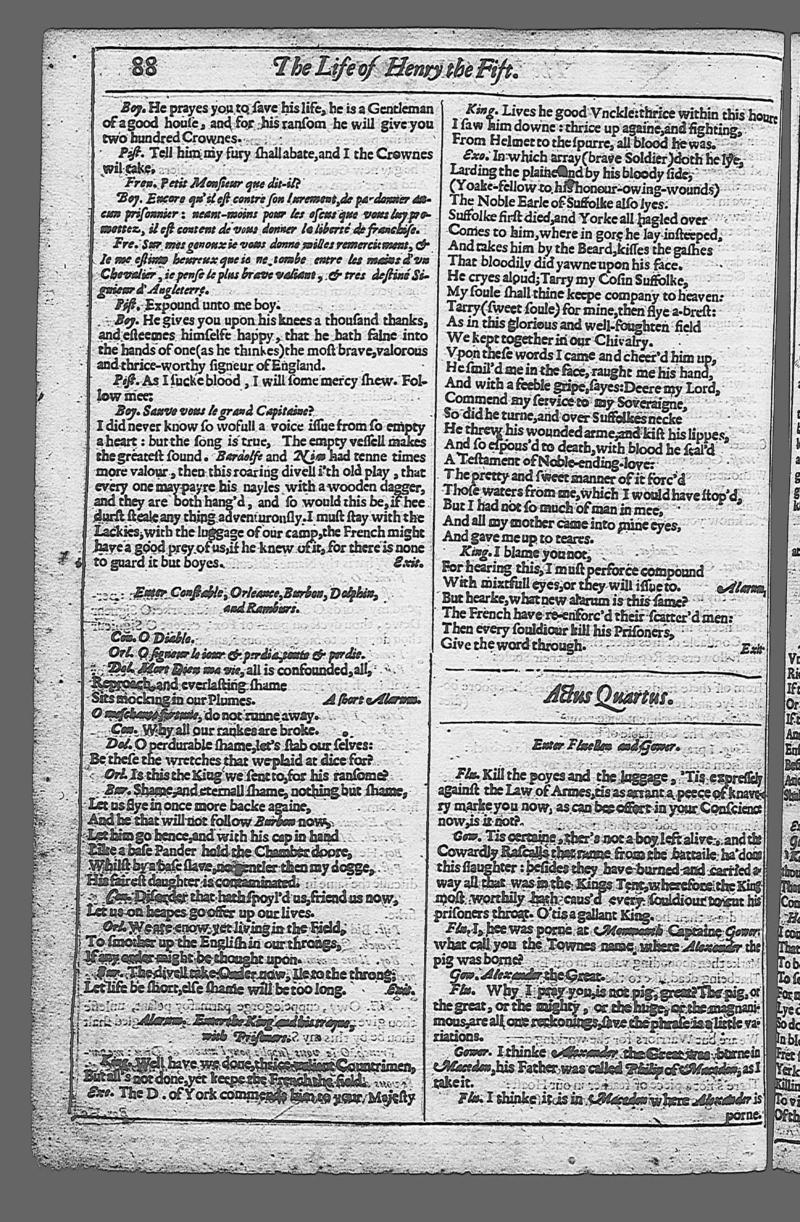 88
The Life of Henry the Fift.
Boy. He prayes you to ſave his life, he is a Gentleman
of a good houſe, and for his ranſom he will give you
two hundred Crownes.
Piſt. Tell him my fury ſhall abate, and I the Crownes
wil take.
Fren. Petit Monſieur que dit-il?
Boy. Encore qu'il eſt contre ſon Iurement, de pardonner au-
cun priſonnier: neant-moins pour les eſcus que vous luy pro-
mettez, il eſt content de vous donner la liberté de franchiſe.
Fre. Sur mes genoux ie vous donne milles remerciment, &
Ie me eſtime heureux que ie ne tombe entre les mains d'un
Chevalier, ie penſe le plus brave valiant, & tres deſtiné Si-
gnieur d'Angleterre.
Piſt. Expound unto me boy.
Boy. He gives you upon his knees a thouſand thanks,
and eſteemes himſelfe happy, that he hath falne into
the hands of one (as he thinkes) the moſt brave, valorous
and thrice-worthy ſigneur of England.
Piſt. As I ſucke blood, I will ſome mercy ſhew. Fol-
low mee:
Boy. Sauve vous le grand Capitaine?
I did never know ſo wofull a voice iſſue from ſo empty
a heart: but the ſong is true, The empty veſſell makes
the greateſt ſound. Bardolfe and Nim had tenne times
more valour, then this roaring divell i'th old play, that
every one may payre his nayles with a wooden dagger,
and they are both hang'd, and ſo would this be, if hee
durſt ſteale any thing adventurouſly. I muſt ſtay with the
Lackies, with the luggage of our camp, the French might
have a good prey of us, if he knew of it, for there is none
to guard it but boyes. Exit.
Enter Conſtable, Orleance, Burbon, Dolphin,
and Ramburs.
Con. O Diable.
Orl. O ſigneur le iour & perdia, toute & perdie.
Dol. Mort Dieu ma vie, all is confounded, all,
Reproach, and everlaſting ſhame
Sits mocking in our Plumes. A ſhort Alarum.
O meſchante fortune, do not runne away.
Con. Why all our rankes are broke.
Dol. O perdurable ſhame, let's ſtab our ſelves:
Be theſe the wretches that we plaid at dice for?
Orl. Is this the King we ſent to, for his ranſome?
Bur. Shame, and eternall ſhame, nothing but ſhame,
Let us flye in once more backe againe,
And he that will not follow Burbon now,
Let him go hence, and with his cap in hand
Like a baſe Pander hold the Chamber doore,
Whilſt by a baſe ſlave, no gentler then my dogge,
His faireſt daughter is contaminated.
Con. Diſorder that hath ſpoyl'd us, friend us now,
Let us on heapes go offer up our lives.
Orl. We are enow yet living in the Field,
To ſmother up the Engliſh in our throngs,
If any order might be thought upon.
Bur. The divell take Order now, Ile to the throng;
Let life be ſhort, elſe ſhame will be too long. Exit.
Alarum. Enter the King and his trayne,
with Priſoners.
King. Well have we done, thrice-valiant Countrimen,
But all's not done, yet keepe the French the field.
Exe. The D. of York commends him to your Majeſty
King. Lives he good Vnckle: thrice within this houre
I ſaw him downe: thrice up againe, and fighting,
From Helmet to the ſpurre, all blood he was.
Exo. In which array (brave Soldier) doth he lye,
Larding the plaine and by his bloody ſide,
(Yoake-fellow to his honour-owing-wounds)
The Noble Earle of Suffolke alſo lyes.
Suffolke firſt died, and Yorke all hagled over
Comes to him, where in gore he lay inſteeped,
And takes him by the Beard, kiſſes the gaſhes
That bloodily did yawne upon his face.
He cryes aloud; Tarry my Coſin Suffolke,
My ſoule ſhall thine keepe company to heaven:
Tarry (ſweet ſoule) for mine, then flye a-breſt:
As in this glorious and well-foughten field
We kept together in our Chivalry.
Vpon theſe words I came and cheer'd him up,
He ſmil'd me in the face, raught me his hand,
And with a feeble gripe, ſayes: Deere my Lord,
Commend my ſervice to my Soveraigne,
So did he turne, and over Suffolkes necke
He threw his wounded arme, and kiſt his lippes,
And ſo eſpous'd to death, with blood he ſeal'd
A Teſtament of Noble-ending-love:
The pretty and ſweet manner of it forc'd
Thoſe waters from me, which I would have ſtop'd,
But I had not ſo much of man in mee,
And all my mother came into mine eyes,
And gave me up to teares.
King. I blame you not,
For hearing this, I muſt perforce compound
With mixtfull eyes, or they will iſſue to. Alarum,
But hearke, what new alarum is this ſame?
The French have re-enforc'd their ſcatter'd men:
Then every ſouldiour kill his Priſoners,
Give the word through. Exit
Actus Quartus.
Enter Fluellen and Gower.
Flu. Kill the poyes and the luggage, 'Tis expreſſely
againſt the Law of Armes, tis as arrant a peece of knave-
ry marke you now, as can bee offert in your Conſcience
now, is it not?
Gow. Tis certaine, ther's not a boy left alive, and the
Cowardly Raſcalls that ranne from the battaile ha' done
this ſlaughter: beſides they have burned and carried a-
way all that was in the Kings Tent, wherefore the King
moſt worthily hath caus'd every ſouldiour to cut his
priſoners throat. O 'tis a gallant King.
Flu. I, hee was porne at Monmouth Captaine Gower:
what call you the Townes name, where Alexander the
pig was borne?
Gow. Alexander the Great.
Flu. Why I pray you, is not pig, great? The pig, or
the great, or the mighty, or the huge, or the magnani-
mous, are all one reckonings, ſave the phraſe is a little va-
riations.
Gower. I thinke Alexander the Great was borne in
Macedon, his Father was called Philip of Macedon, as I
take it.
Flu. I thinke it is in Macedon where Alexander is
porne.